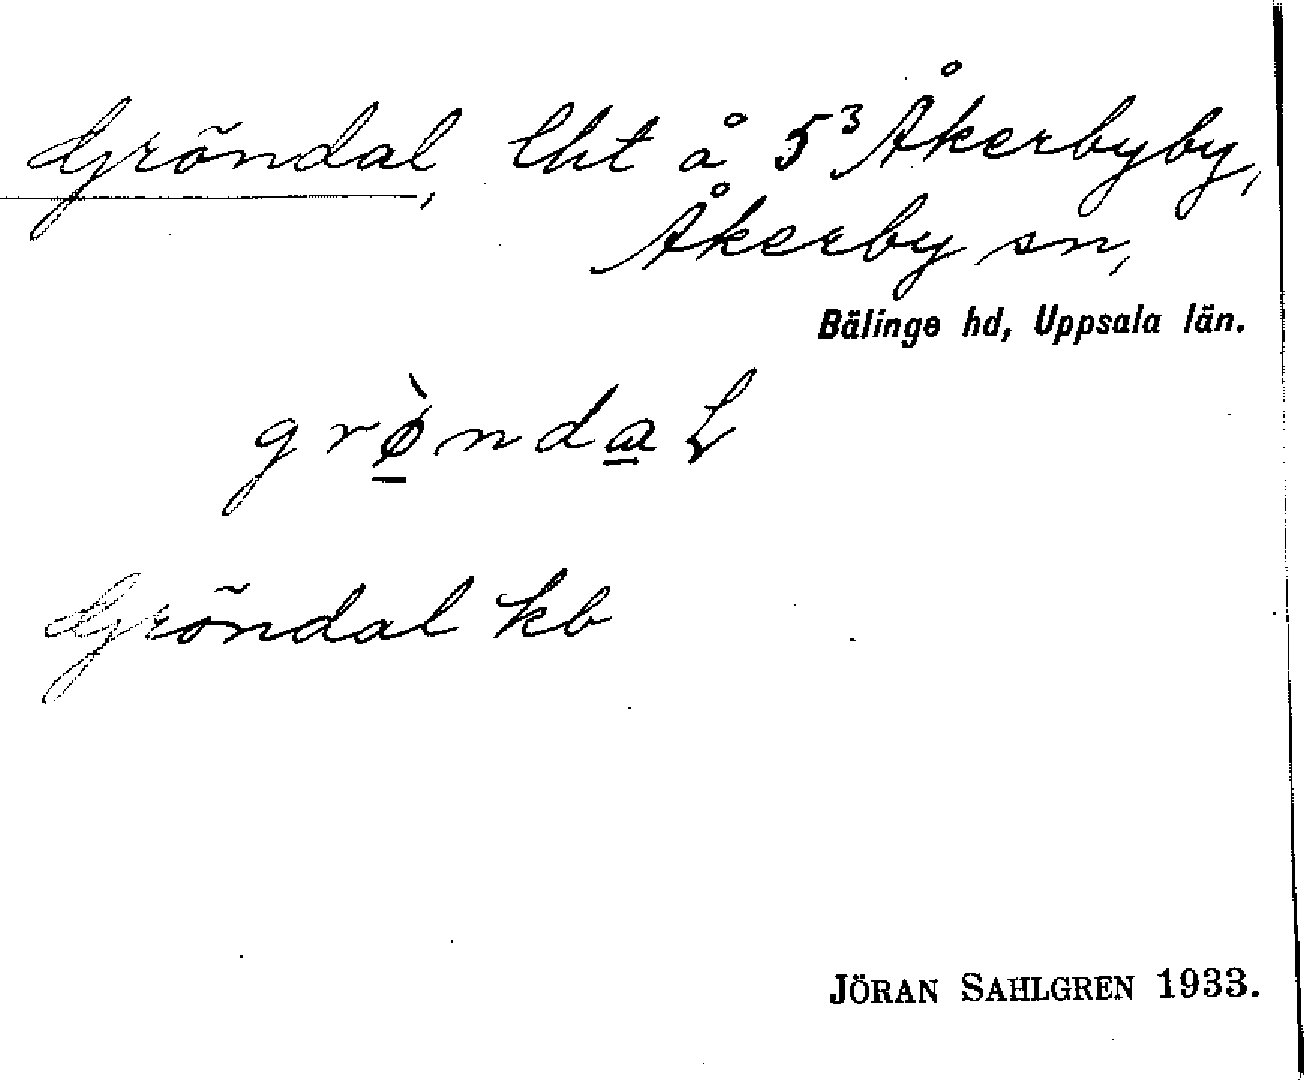 Gröndal, lht å 5³ Åkerbyby,
Åkerby sn,
Bälinge hd, Uppsala län.
grø̀ndaƚ
Gröndal kb
JÖRAN SAHLGREN 1933.